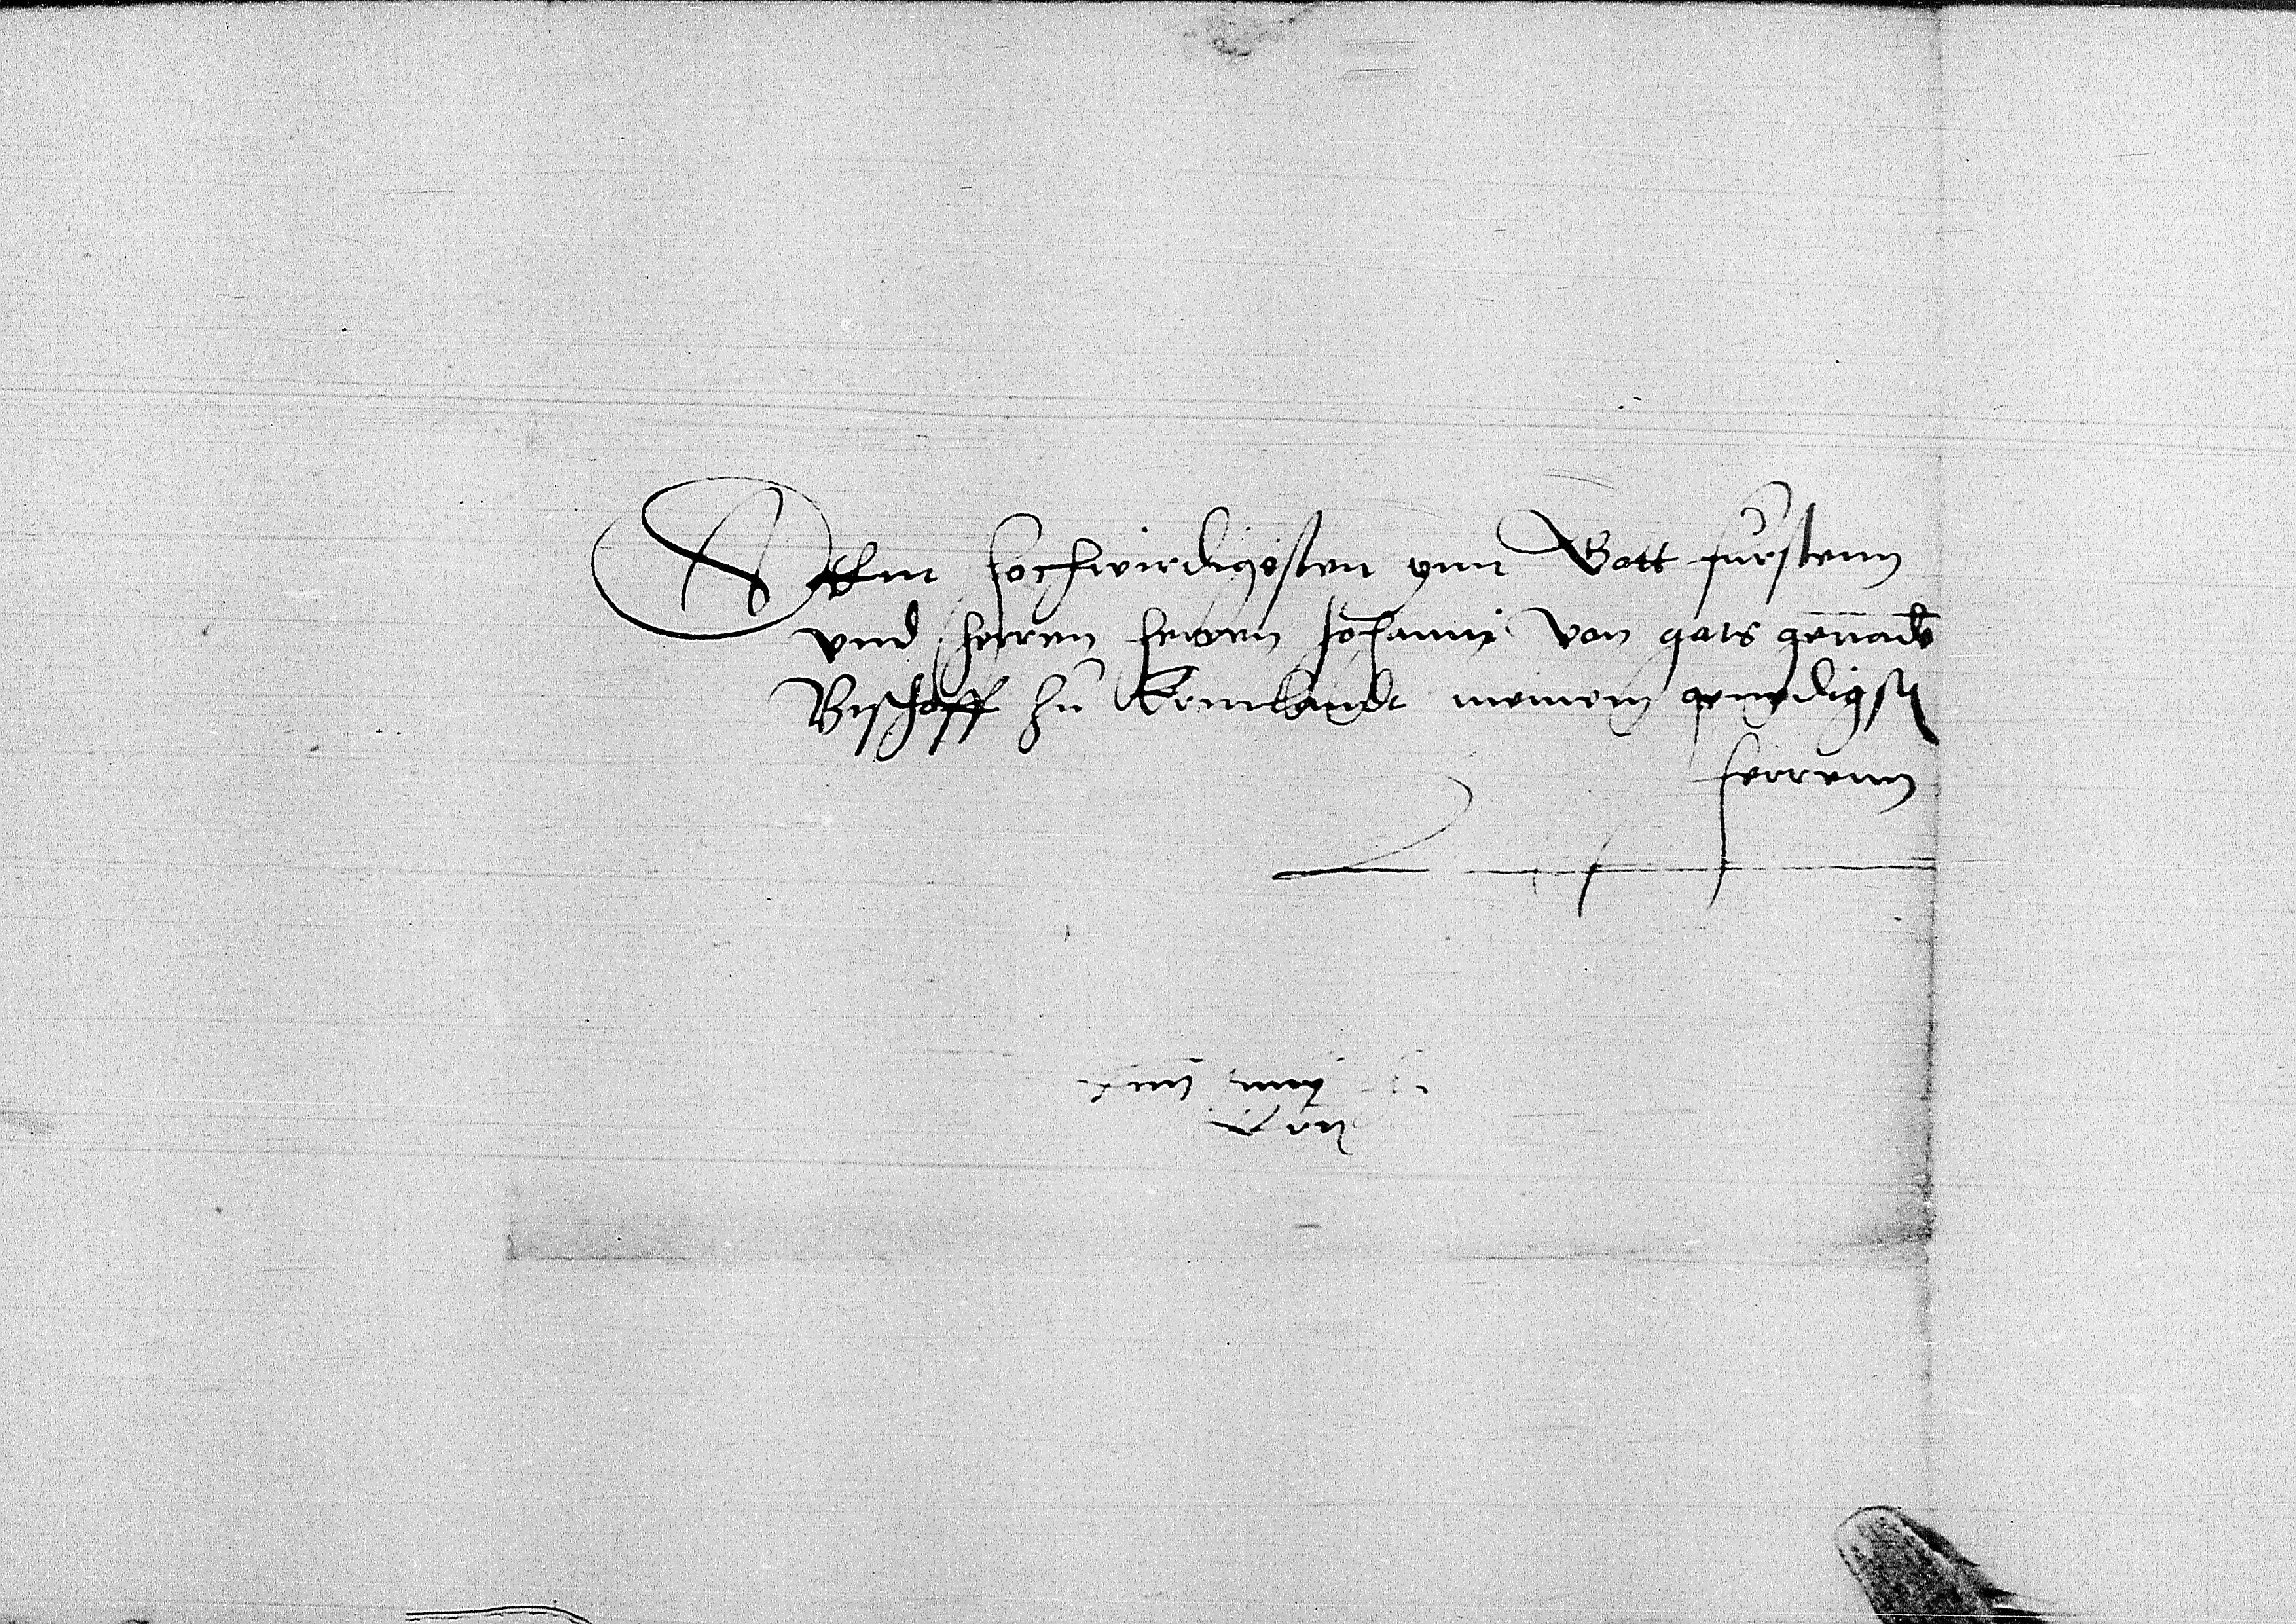 Dem hochwirdigisten ynn Gott furstenn
vnd herren herren Johanni von gots genade
Bischoff zu Ermlandt meinem genedigst
herrenn